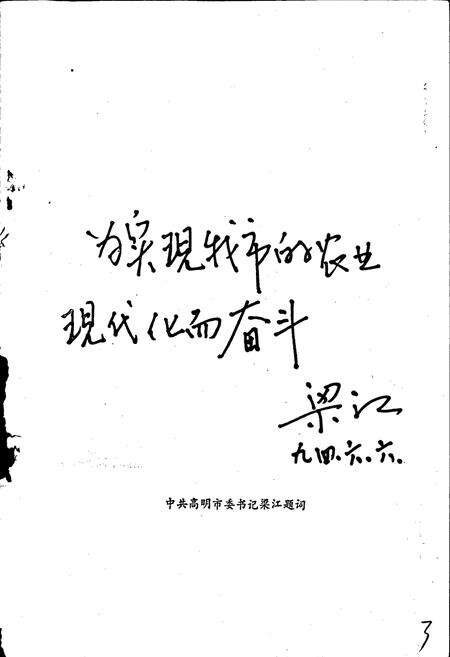 为实現我市的农业
現代化而奋斗
梁江
九四.六.六.
中共高明市委书记梁江题词
3